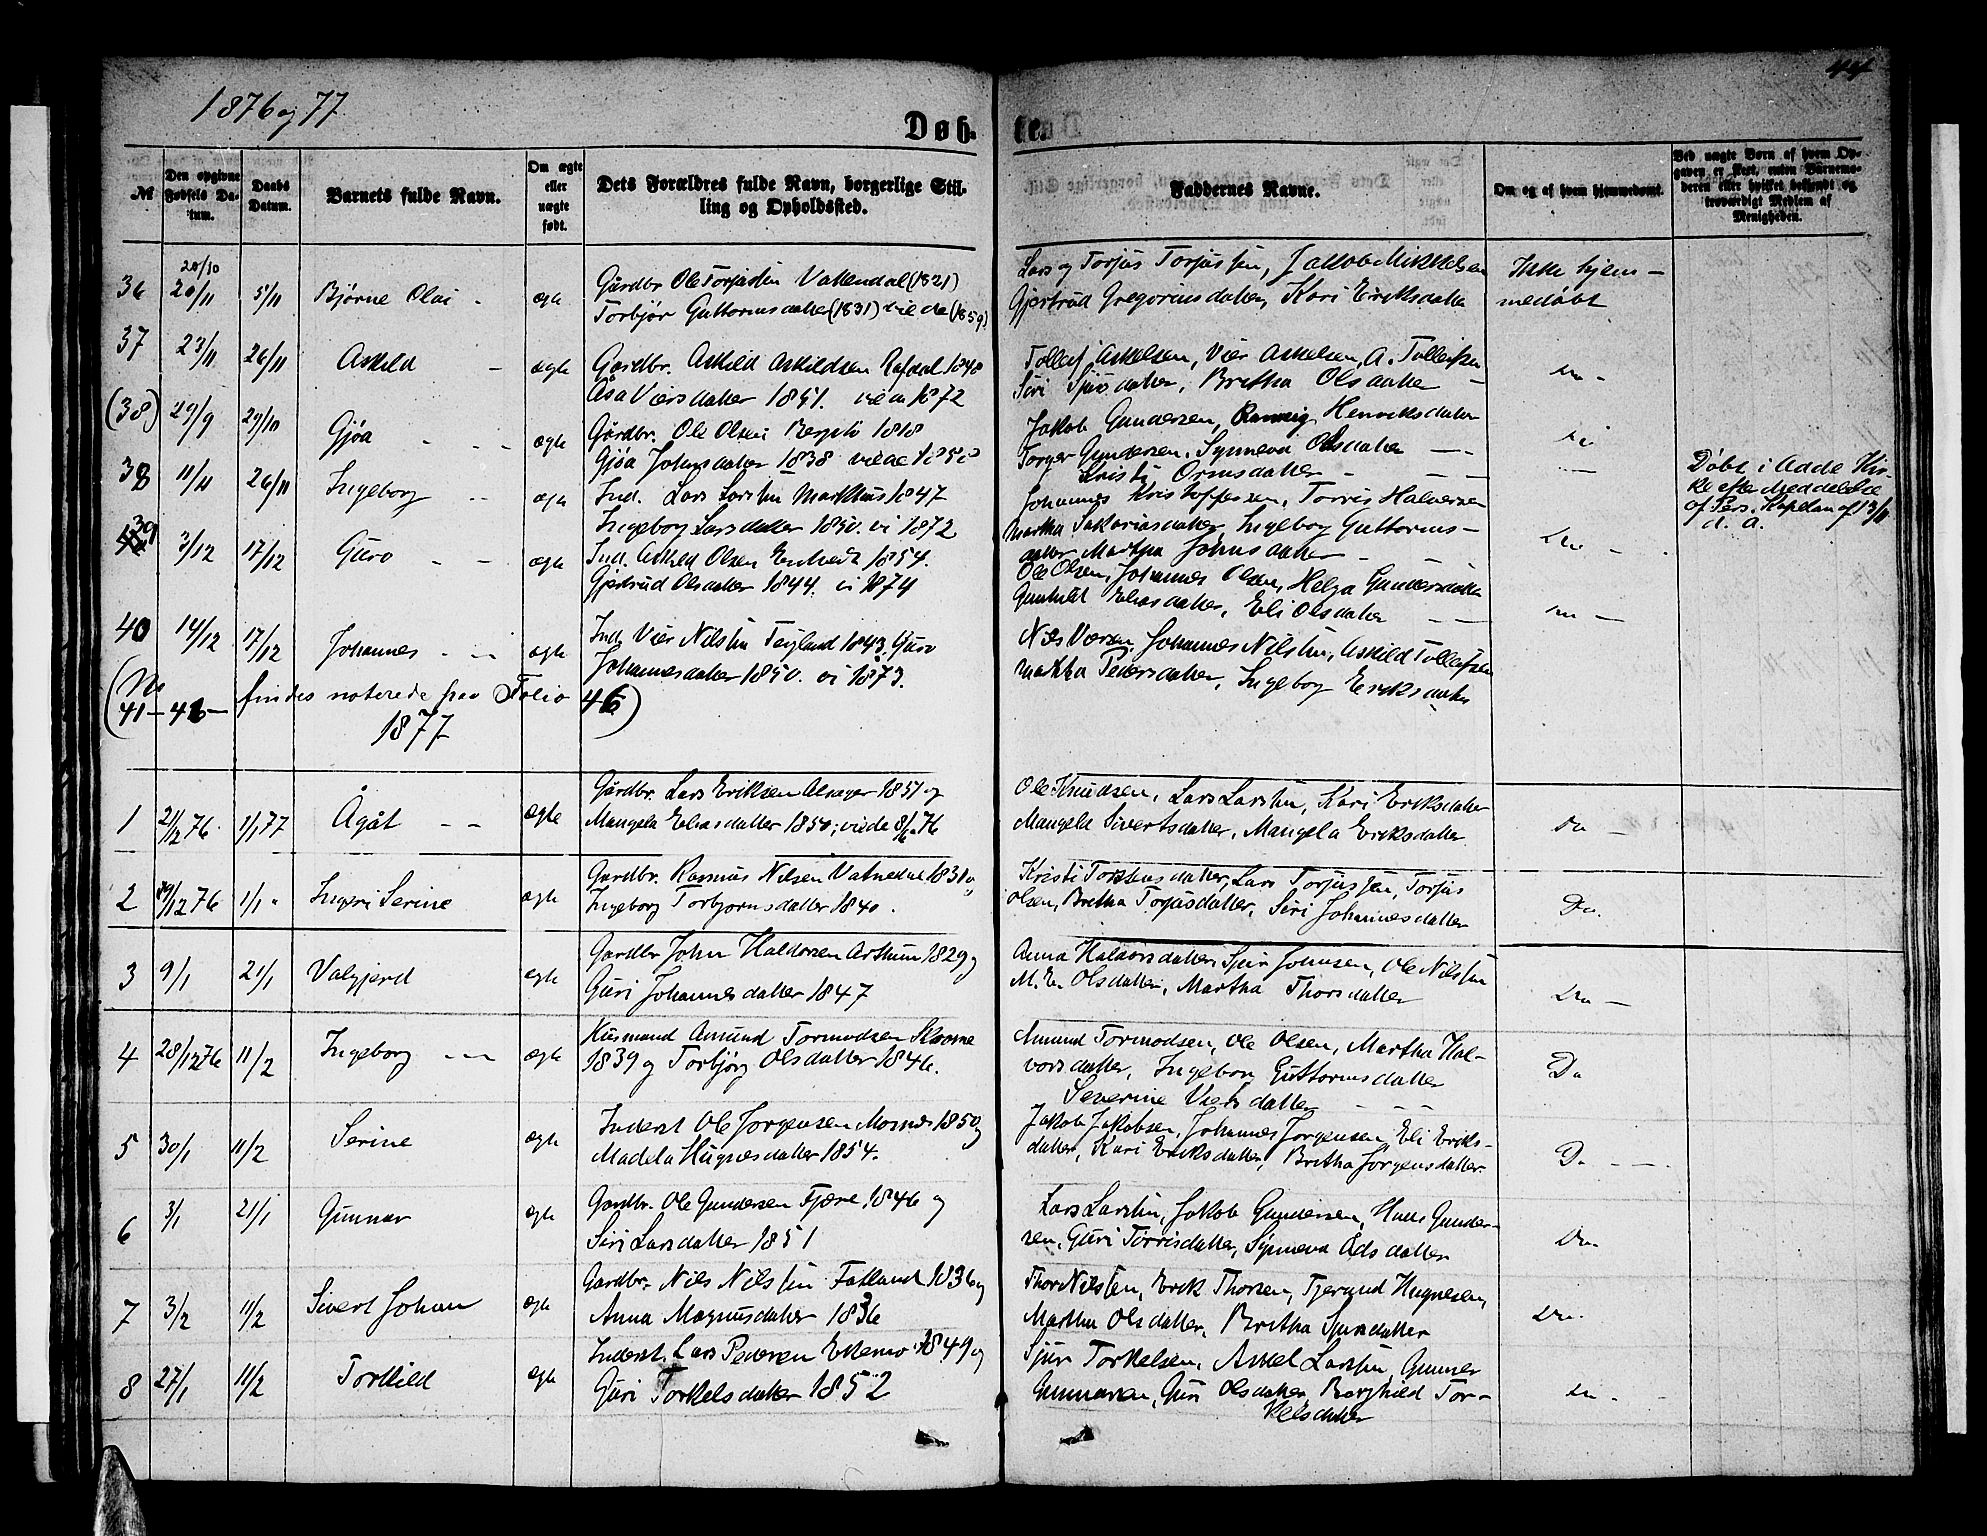 1876 og 77
44
Døb-
te.
№
Den opgivne Fødsels Datum.
Daabs Datum.
Barnets fulde Navn.
Om ægte eller uægte født.
Dets Forældres fulde Navn, borgerlige Stilling og Opholdssted.
Faddernes Navne.
Om og af hvem hjemmedøbt.
Ved uægte Børn af hvem Opgaven er skeet, enten Barnemoderen eller hvilket bekjendt og troværdigt Medlem af Menigheden.
36 20/10 20/11 5/11 Bjørne Olai ægte
Gårdbr Ole Torjussen (1821)
Torbjør Guttormsdatter (1831) viede (1859)
Lars og Torjus Torjussen, Jakob Mikkelsen
Gjertrud Gregoriusdatter, Kari Eriksdatter
Ikke hjem-
medøbt
37 23/11 26/11 Askild - ægte
Gårdbr. Askild Askildsen 1848
Åsa Viersdatter 1851. viede 1872
Tollef Askelsen, Vier Askelsen, A. Tollefsen
Siri Sjursdatter, Britha Olsdatter -
(38) 29/9 29/10 Gjøa - - - ægte
Gårdbr. Ole Olsen 1818
Gjøa Johnsdatter 1838
Jakob Gundersen, Henriksdatter
Torger Gundersen, Synneva Olsdatter
Kristi Ormsdatter
38 11/11 26/11 Ingeborg - - ægte
Ind. Lars Larsen Markhus 1847
Ingeborg Larsdatter 1850. vi 1872
Johannes Kristoffersen, Torris Halvorsen
Martha Sakariasdatter, Ingeborg Guttorms-
datter, Martha Johnsdatter
Døbt i Kir-
ke efter Meddelelse
af Pers. Kapelan af 13/11
d. A.
39 3/12 17/12 Guro - - ægte
Ind. Askild Olsen 1854.
Gjertrud Olsdatter 1844. vi 1874
Ole Olsen, Johannes Olsen, Helga Gundersdatter
Gunhild Eliasdatter, Eli Olsdatter
40 14/12 17/12 Johannes - - ægte
Ind. Vier Nilsen Teigland 1843, Guro
Johannesdatter 1850. vi 1873.
Nils Viersen, Johannes Nilsen, Askild Tollefsen
Martha Pedersdatter, Ingeborg Eriksdatter
(No
41-46- findes noterede paa Folio 46)
1877
1 21/12 76. 1/1 77 Ågåt - - ægte
Gårdbr. Lars Eriksen 1851 og
Mangela Eliasdatter 1850; viede 8/6 76
Ole Knudsen, Lars Larsen, Kari Eriksdatter
Mangela Sivertsdatter, Mangela Eriksdatter
Do -
2 29/12 76 1/1 " Ingeri Serine ægte
Gardbr. Rasmus Nilsen Vatnedal 1831 og
Ingeborg Torbjornsdatter 1840.
Kristi Torstensdatter, Lars Torjussen, Torjus
Olsen, Britha Torjusdatter, Siri Johannesdatter
Do.
3 9/1 21/1 Valgjerd ægte
Gardbr John Haldorsen Arthun 1829 og
Guri Johannesdatter 1847
Anna Haldorsdatter, Sjur Johnsen, Ole Nilsen
Olsdatter, Martha Thorsdatter
Do -
4 28/12 76 11/2 Ingeborg - - ægte
Husmand Amund Tormodsen
1839 og Torbjørg Olsdatter 1846.
Amund Tormodsen, Ole Olsen, Martha Hal-
vorsdatter, Ingebor Guttormsdatter
Severine Viersdatter
Do
5 30/1 11/2 Serine ægte
Inderst Ole Jørgensen Mosnes 1850 og
Madela Hugnesdatter 1854.
Jakob Jakobsen, Johannes Jørgensen, Eli Eriks-
datter, Kari Eriksdatter, Britha Jørgensdatter
Do
6 3/1 21/1 Gunnar ægte
Gardbr. Ole Gundersen Fjære 1846 og
Siri Larsdatter 1851
Lars Larsen, Jakob Gundersen, Hans Gunder-
sen, Guri Torrisdatter, Synneva Odsdatter
Do
7 3/2 11/2 Sivert Johan ægte
Gardbr. Nils Nilsen Fatland 1836 og
Anna Magnusdatter 1836
Thor Nilsen, Erik Thorsen, Tjerand Hugnesen,
Martha Olsdatter, Britha Sjursdatter
Do.
8 27/1 11/2 Torkild ægte
Inderst. Lars Pedersen 1849 og
Guri Torkelsdatter 1852
Sjur Torkelsen, Aksel Larsen, Gunnar
Gunnarsen, Guri Olsdatter, Borghild Tor-
kelsdatter
Do -